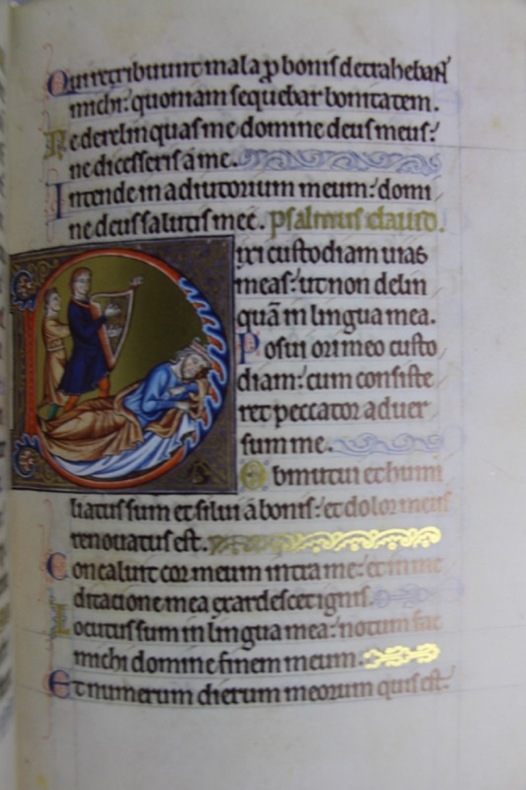 Qui retribuunt mala ꝓ bonis detrahebant
michi: quoniam sequebar bonitatem.
Ne derelinquas me domine deus meus:
ne discesseris a me.
Intende in adiutorium meum: domi
ne deus salutis meę. psalmus dauid.
Dixi custodiam uias
meas: ut non delin
quā in lingua mea.
Posui ori meo custo
diam: cum consiste
ret peccator aduer
sum me.
Obmutui et humi
liatus sum et silui a bonis: et dolor meus
renouatus est.
Concaluit cor meum intra me: et in me
ditatione mea exardescet ignis.
Locutus sum in lingua mea: notum fac
michi domine finem meum.
Et numerum dierum meorum quis est: